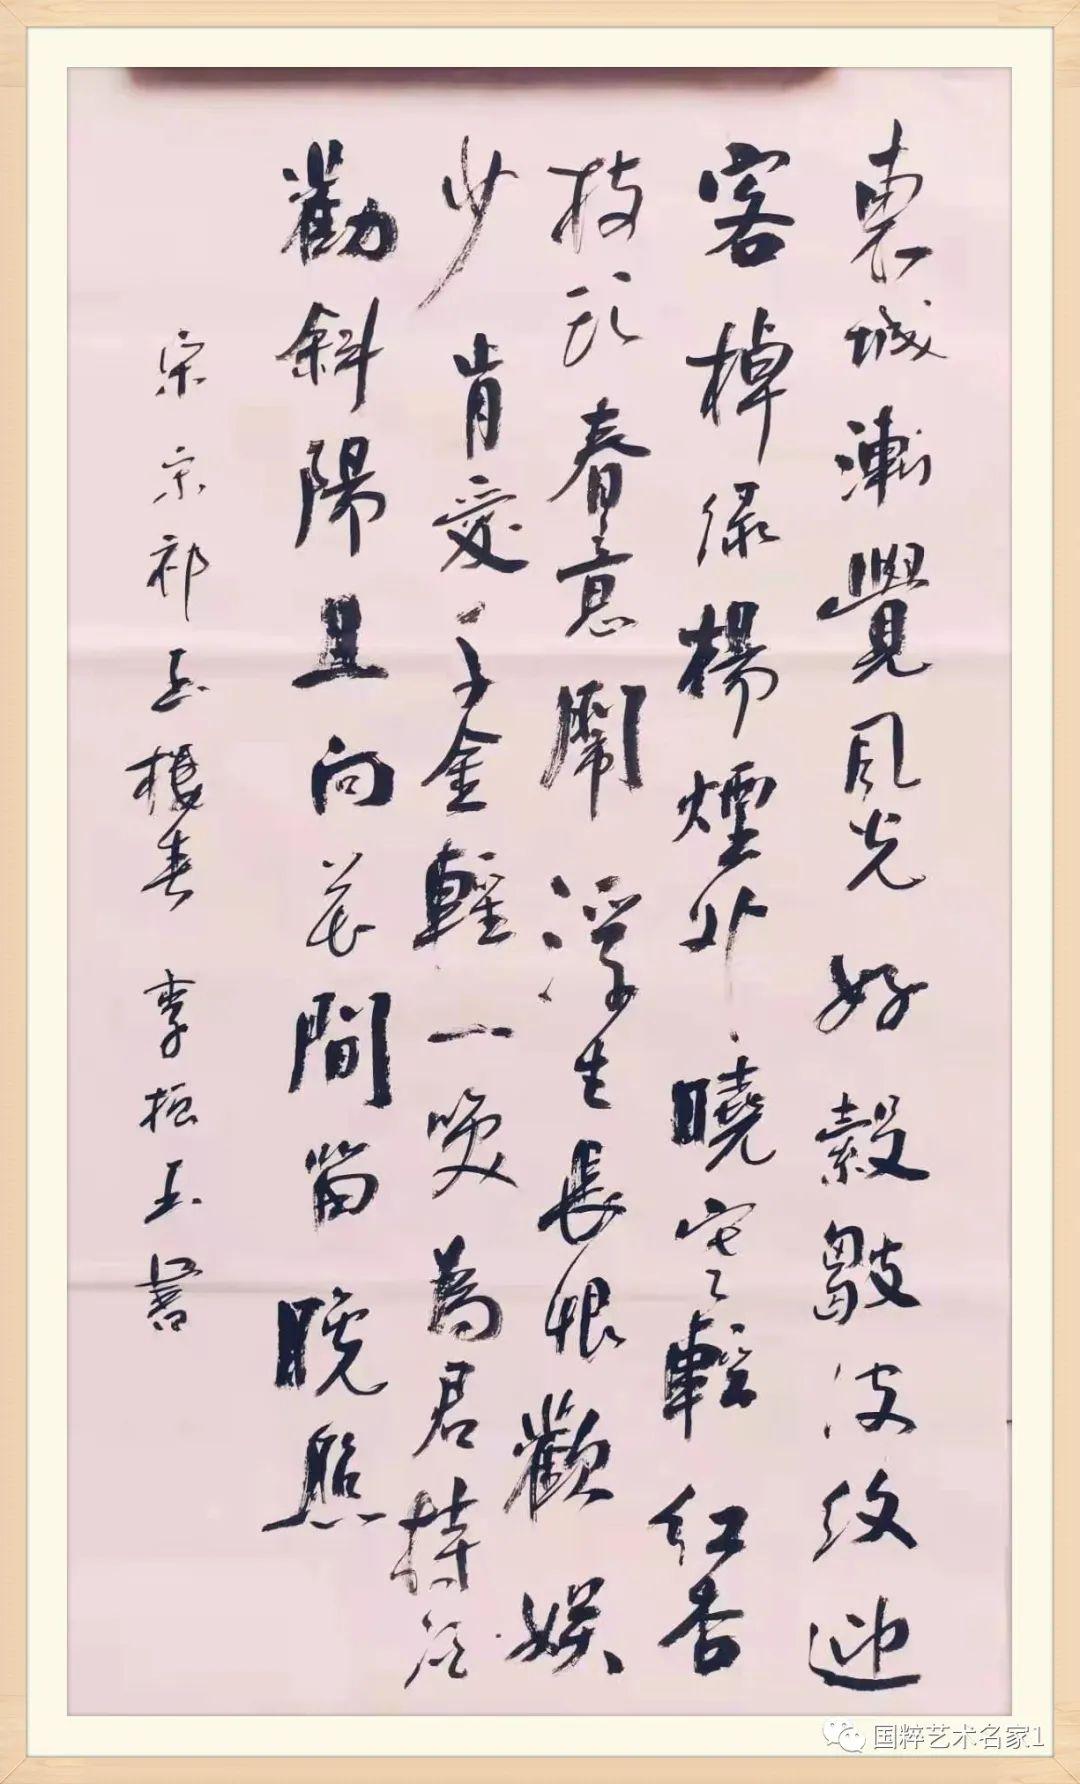 東城漸覺風光好縠皺波紋迎
客棹绿楊煙外曉寒輕红杏
枝頭春意鬧浮生長恨歡娱
少肯愛千金輕一笑為君持酒
勸斜陽且向花間留晚照
宋宋祁玉楼春 李振玉書
国粹艺术名家1